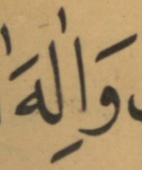 وَاِلٰهَ